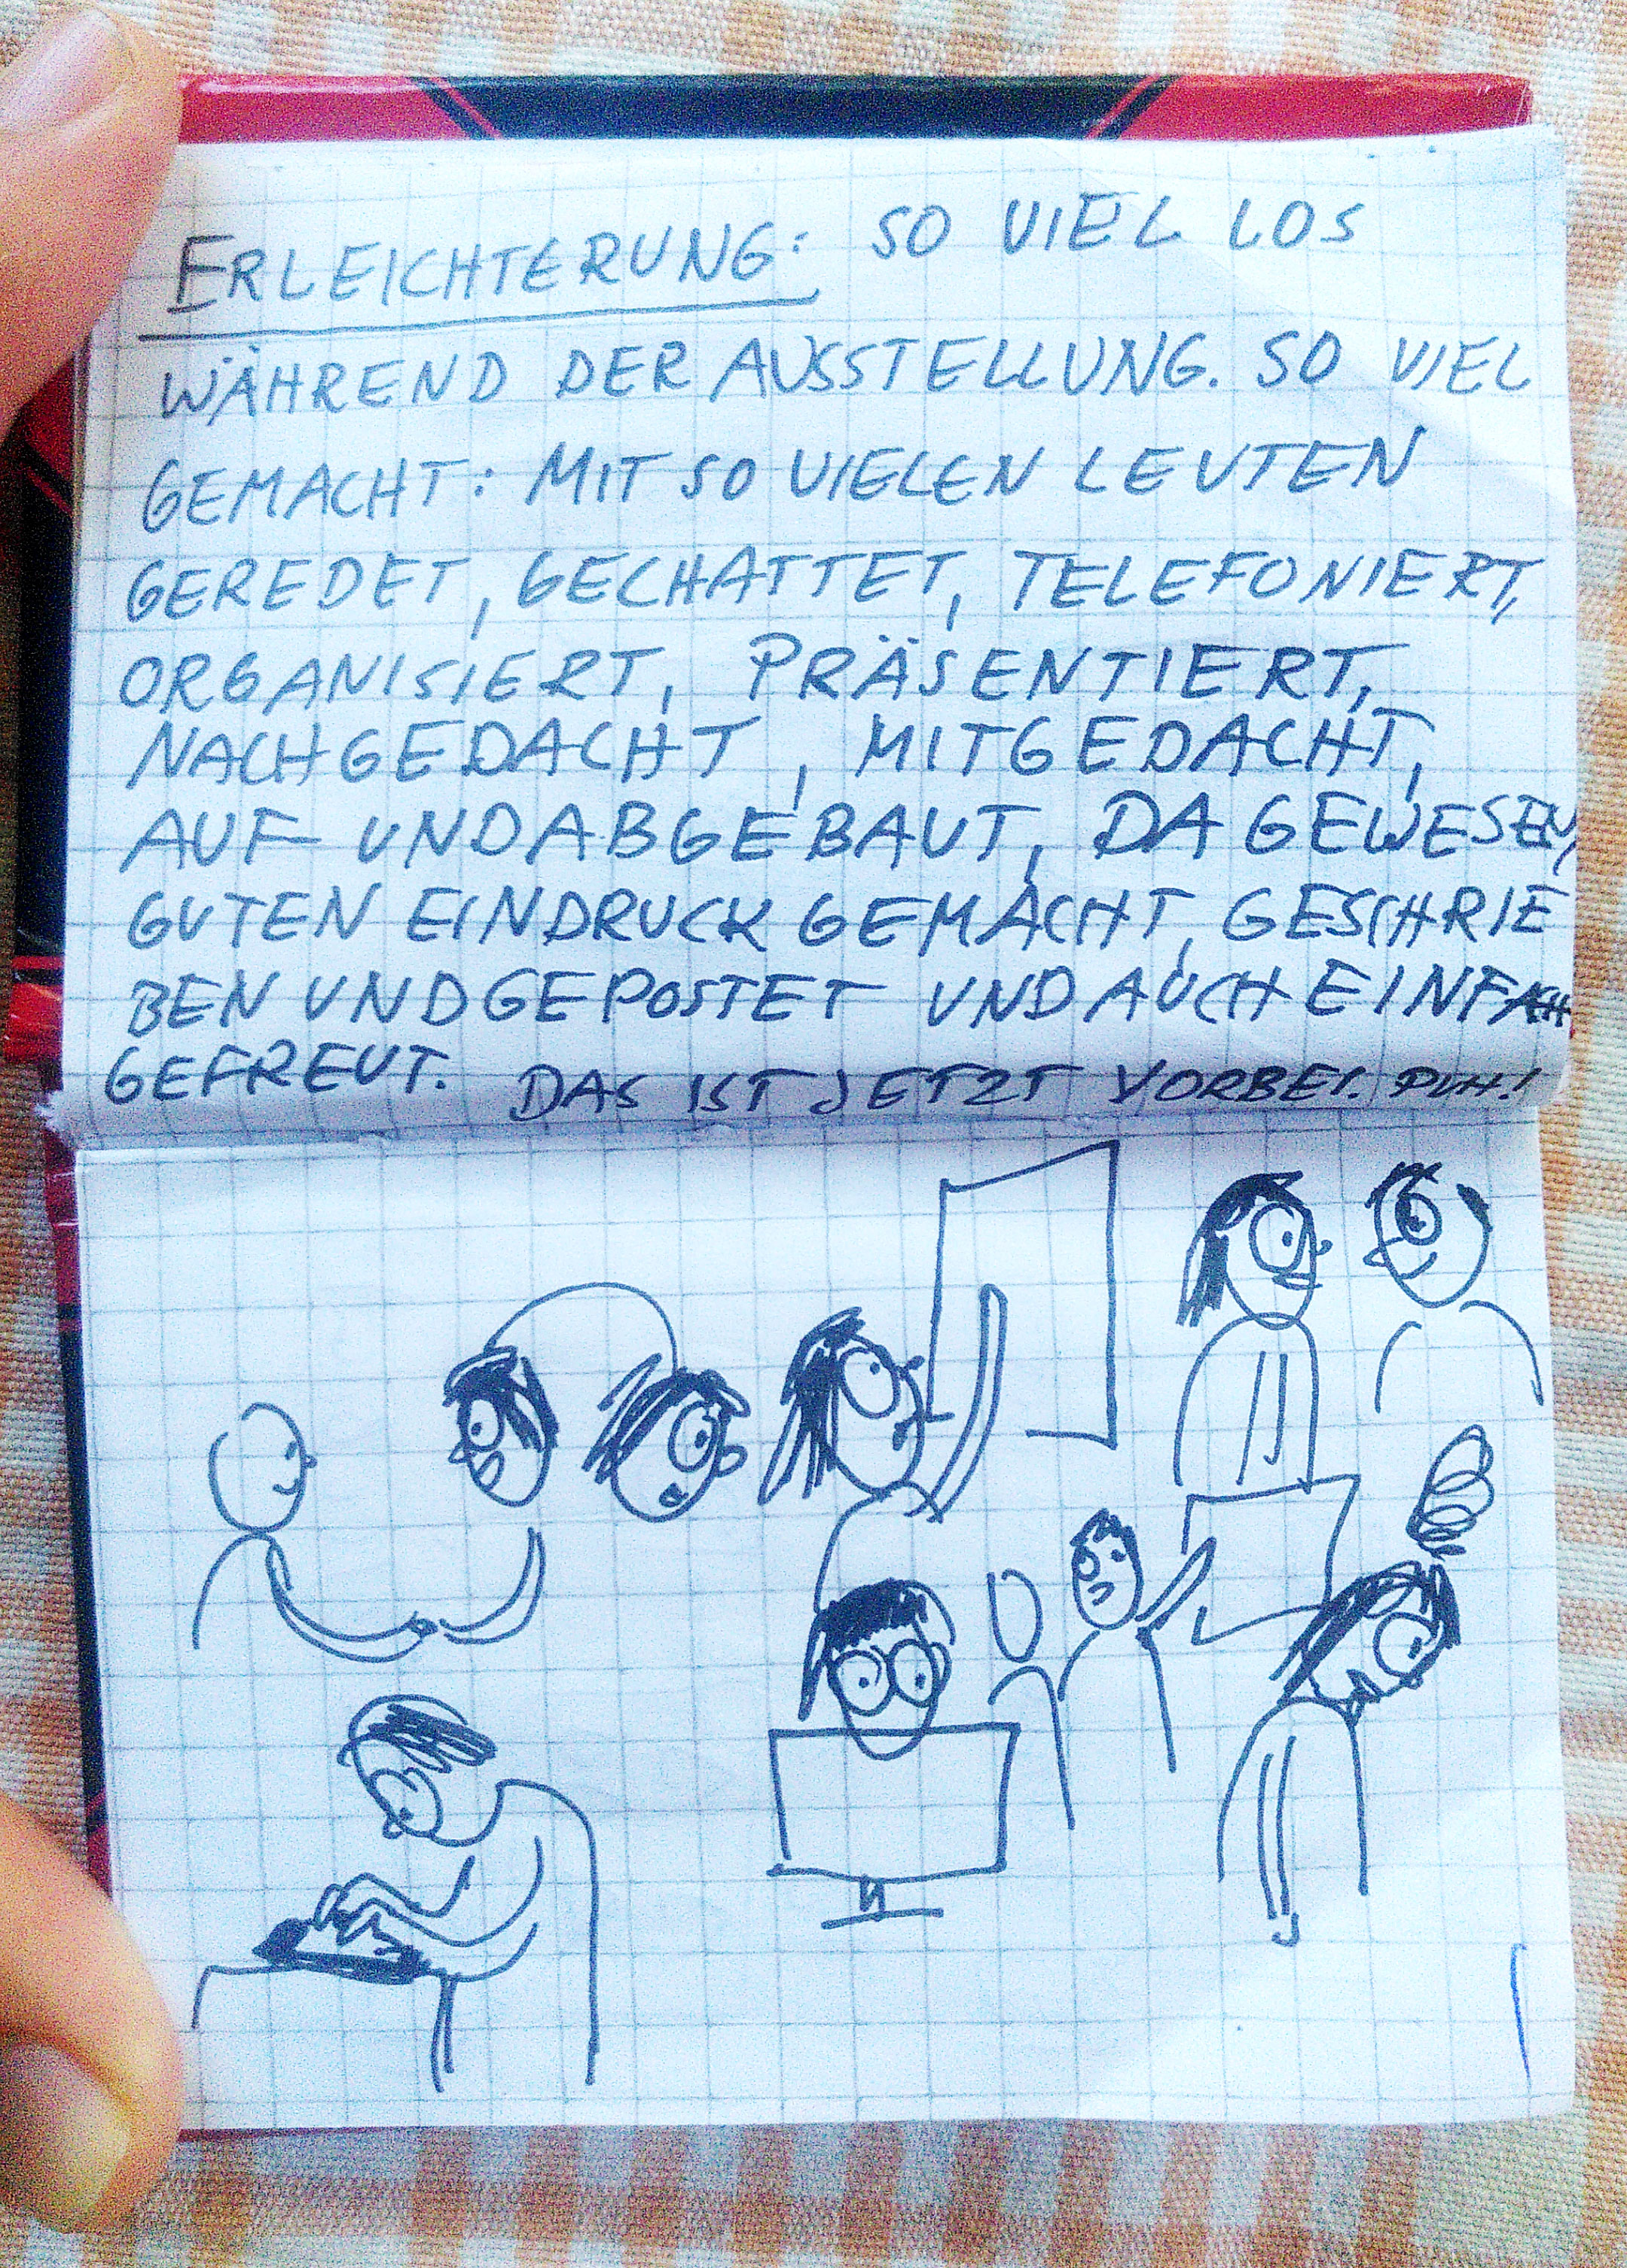 ERLEICHTERUNG: SO VIEL LOS
WÄHREND DER AUSSTELLUNG. SO VIEL
GEMACHT: MIT SO VIELEN LEUTEN
GEREDET, GECHATTET, TELEFONIERT,
ORGANISIERT, PRÄSENTIERT,
NACHGEDACHT, MITGEDACHT,
AUF UND ABGEBAUT, DA GEWESEN,
GUTEN EINDRUCK GEMACHT, GESCHRIE
BEN UND GEPOSTET UND AUCH EINFACH
GEFREUT. DAS IST JETZT VORBEI. PUH!